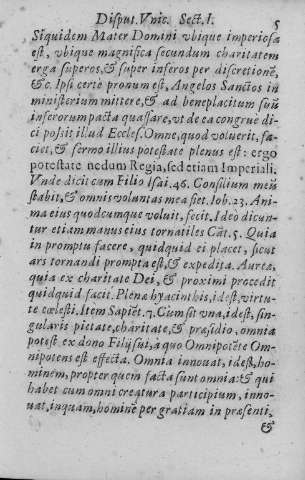 Disput. Vnic. Sect. I. 5
Siquidem Mater Domini vbique imperiosa
est, vbique magnifica secundum charitatem
erga superos, & super inferos per discretionē,
&c. Ipsi certè pronum est, Angelos Sanctos in
ministerium mittere, & ad beneplacitum suū
inferorum pacta quassare, vt de ea congruè di-
ci possit illud Eccles. Omne, quod voluerit, fa-
ciet, & sermo illius potestate plenus est: ergo
potestate nedum Regia, sed etiam Imperiali.
Vnde dicit cum Filio Isai. 46. Consilium meū
stabit, & omnis voluntas mea fiet. Iob. 23. Ani-
ma eius quodcumque voluit, fecit. Ideo dicun-
tur etiam manus eius tornatiles Cāt. 5. Quia
in promptu facere, quidquid ei placet, sicut
ars tornandi prompta est, & expedita. Aureæ,
quia ex charitate Dei, & proximi procedit
quidquid facit. Plena hyacinthis, idest, virtu-
te cœlesti. Item Sapiēt. 7. Cum sit vna, idest, sin-
gularis pietate, charitate, & præsidio, omnia
potest ex dono Filij sui, à quo Omnipotēte Om-
nipotens est effecta. Omnia innouat, idest, ho-
minem, propter quem facta sunt omnia: & qui
habet cum omni creatura participium, inno-
uat, inquam, hominē per gratiam in præsenti,
&